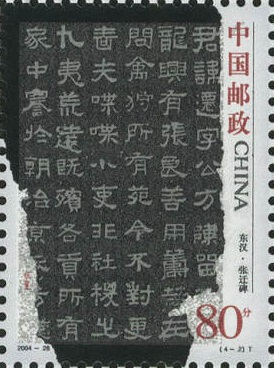 君諱遷字公方陳留
龍興有張良善用籌在
問禽狩所有苑令不對更
嗇夫喋喋小吏非社稷之
九夷荒遠既殯各貢所有
家中謇於朝治京
中国邮政 CHINA
东汉·张迁碑
80分
2004-28
(4-2)T